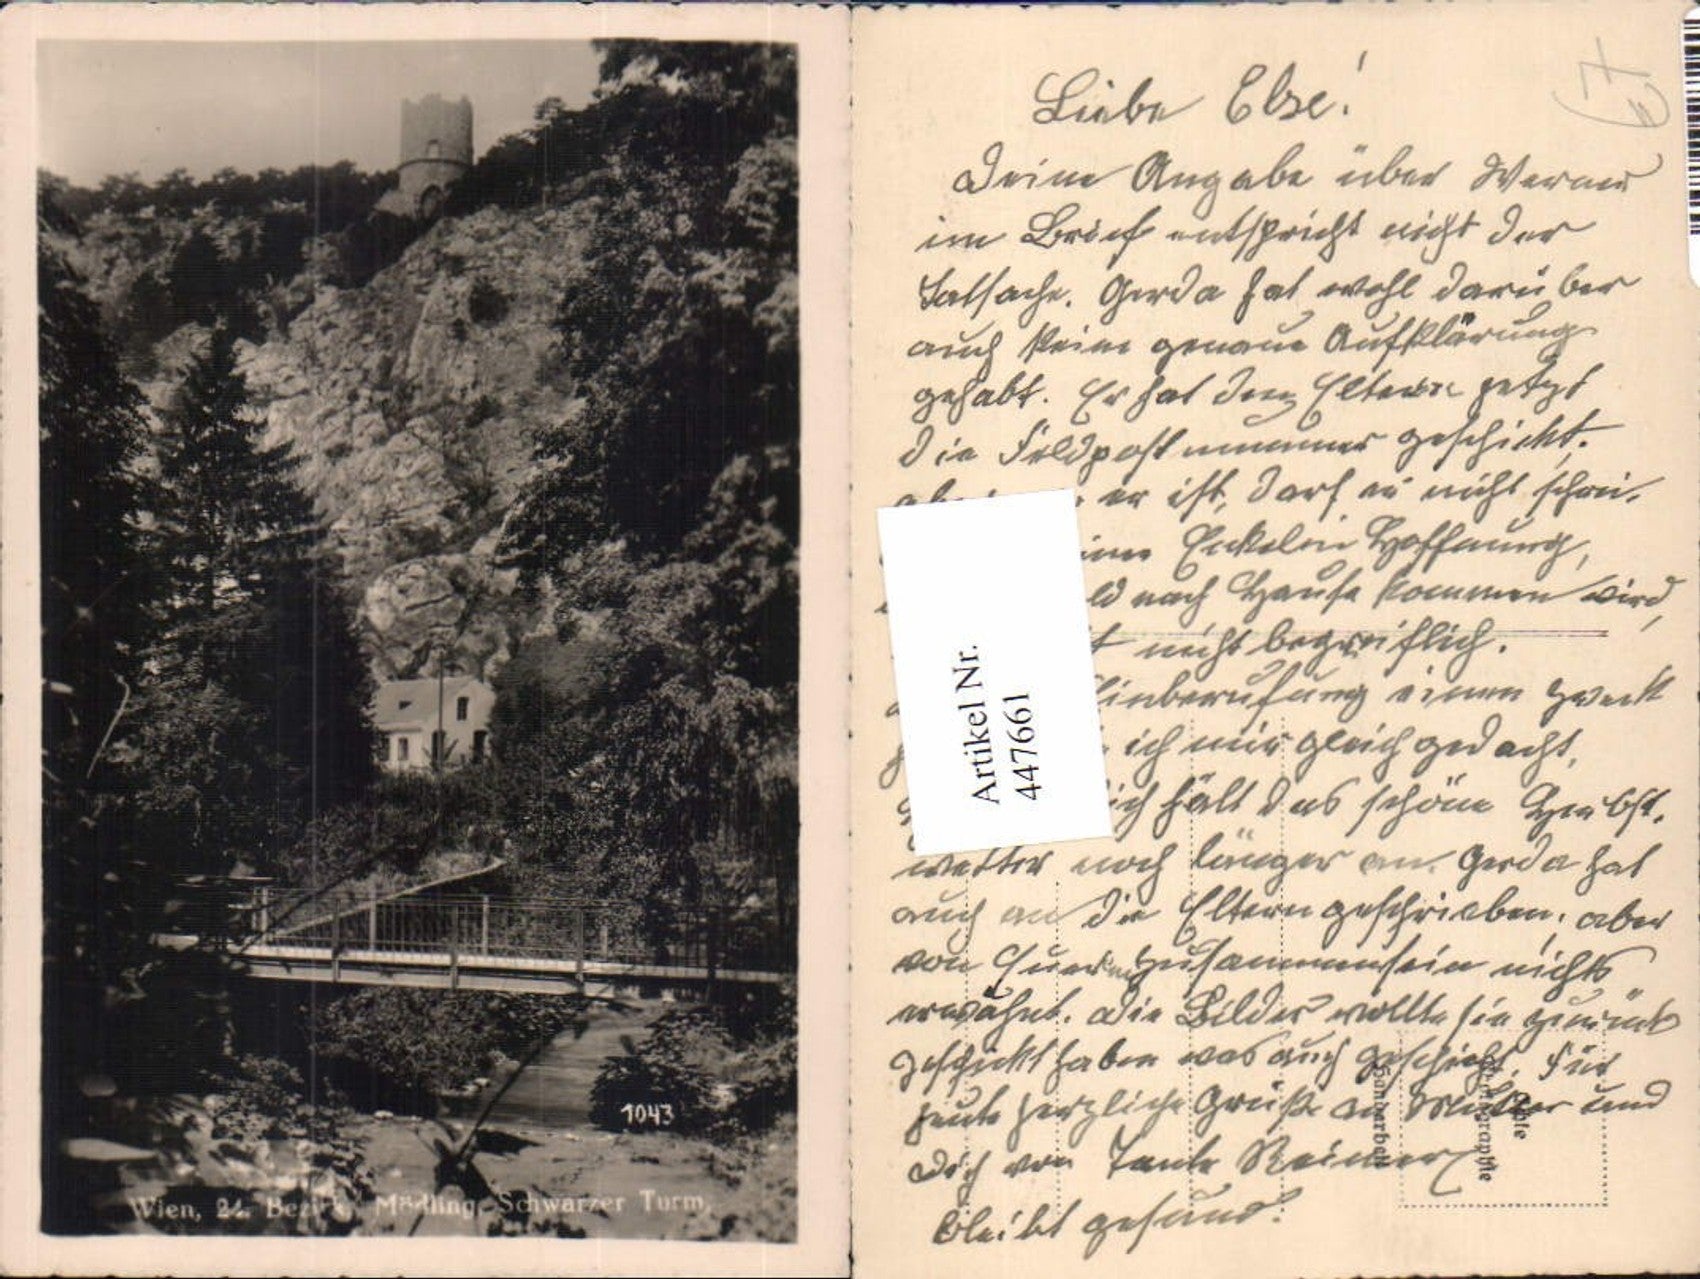 1043
Wien, 24. Bezirk, Mödling, Schwarzer Turm.
Liebe Else!
Deine Angabe über Werner
im Brief entspricht nicht der
Tatsache. Gerda hat wohl darüber
auch keine genaue Aufklärung
gehabt. Er hat den Eltern jetzt
die Feldpostnummer geschickt.
er ist, darf er nicht schrei-
Hoffnung,
ld nach Hause kommen wird,
t nicht begreiflich.
Einberufung einen Zweck
ich mir gleich gedacht,
ich hält das schöne Herbst-
wetter noch länger an. Gerda hat
auch an die Eltern geschrieben, aber
von Zusammensein nichts
erwähnt. Die Bilder wollte sie zurück
geschickt haben was auch geschieht. Für
heute herzliche Grüße an Mutter und
Dich von Tante Reimer
Bleibt gesund!
Artikel Nr.
447661
Echte
Photographie
Handarbeit